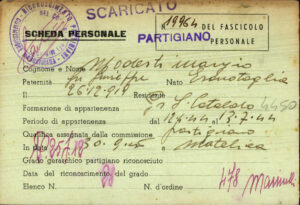 SCARICATO
N° 19964 DEL FASCICOLO
PERSONALE
SCHEDA PERSONALE
PARTIGIANO
Cognome e Nome Modesti Mario
Paternità fu Giuseppe Nato Esanatoglia
26.12.919 Residente
Formazione di appartenenza Gr. S. Cataldo
Periodo di appartenenza 12.4.44 13.7.44
Qualifica assegnata dalla commissione partigiano
In data 30.9.46 Matelica
Grado gerarchico partigiano riconosciuto
Data del riconoscimento del grado
Elenco N. N. d'ordine 478